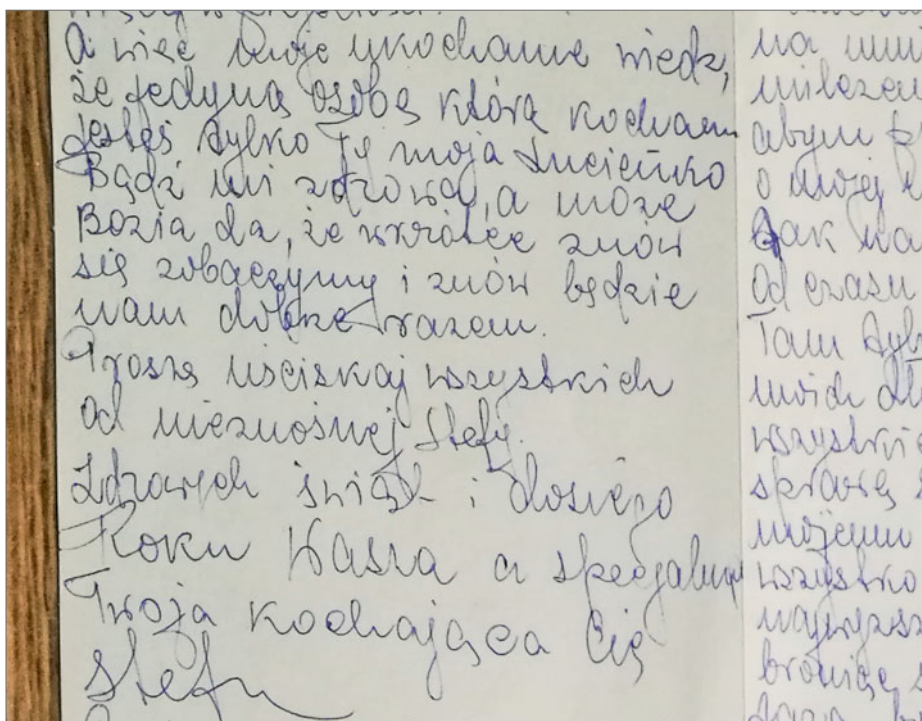 A więc moje ukochanie wiedz,
że jedyną osobą którą kocham
jesteś tylko Ty moja Lucieńko
Bądź mi zdrowa, a może
Bozia da, że wkrótce znów
się zobaczymy i znów będzie
nam dobrze razem.
Proszę uściskaj wszystkich
od nieznośnej Stefy.
Zdrowych świąt i dosiego
Roku Wasza a specjalnie
Twoja kochająca Cię
Stefa
na
abym
o mojej
Jak na
od czasu
Tam
moich
sprawę
mojemu
wszystko